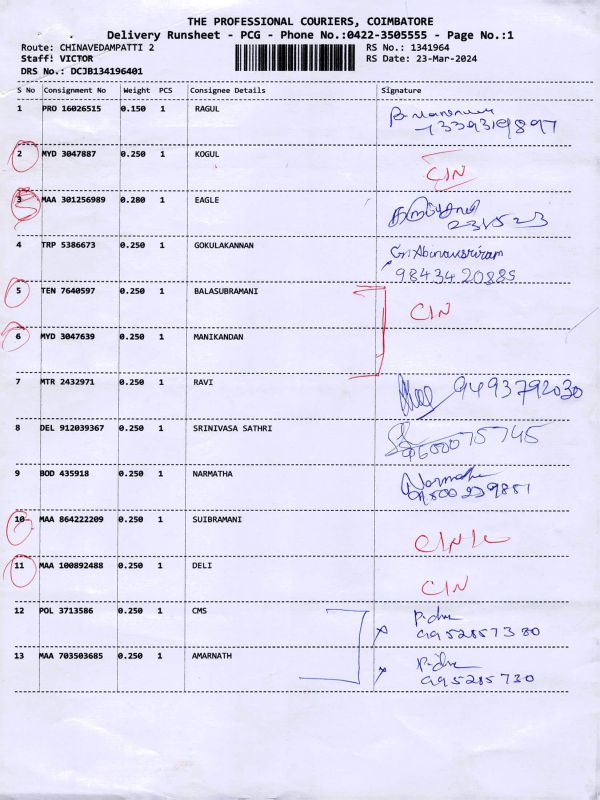 THE PROFESSIONAL COURIERS, COIMBATORE
Delivery Runsheet - PCG - Phone No.:0422-3505555 - Page No.:1
Route: CHINAVEDAMPATTI 2 RS No.: 1341964
Staff: VICTOR RS Date: 23-Mar-2024
DRS No.: DCJB134196401
S No Consignment No Weight PCS Consignee Details Signature
1 PRO 16026515 0.150 1 RAGUL
2 MYD 3047887 0.250 1 KOGUL CIN
3 MAA 301256989 0.280 1 EAGLE
4 TRP 5386673 0.250 1 GOKULAKANNAN
9843420885
5 TEN 7640597 0.250 1 BALASUBRAMANI CIN
6 MYD 3047639 0.250 1 MANIKANDAN
7 MTR 2432971 0.250 1 RAVI 9493792030
8 DEL 912039367 0.250 1 SRINIVASA SATHRI
9600075745
9 BOD 435918 0.250 1 NARMATHA Narmatha
10 MAA 864222209 0.250 1 SUIBRAMANI
11 MAA 100892488 0.250 1 DELI CIN
12 POL 3713586 0.250 1 CMS
9952857380
13 MAA 703503685 0.250 1 AMARNATH
995285730